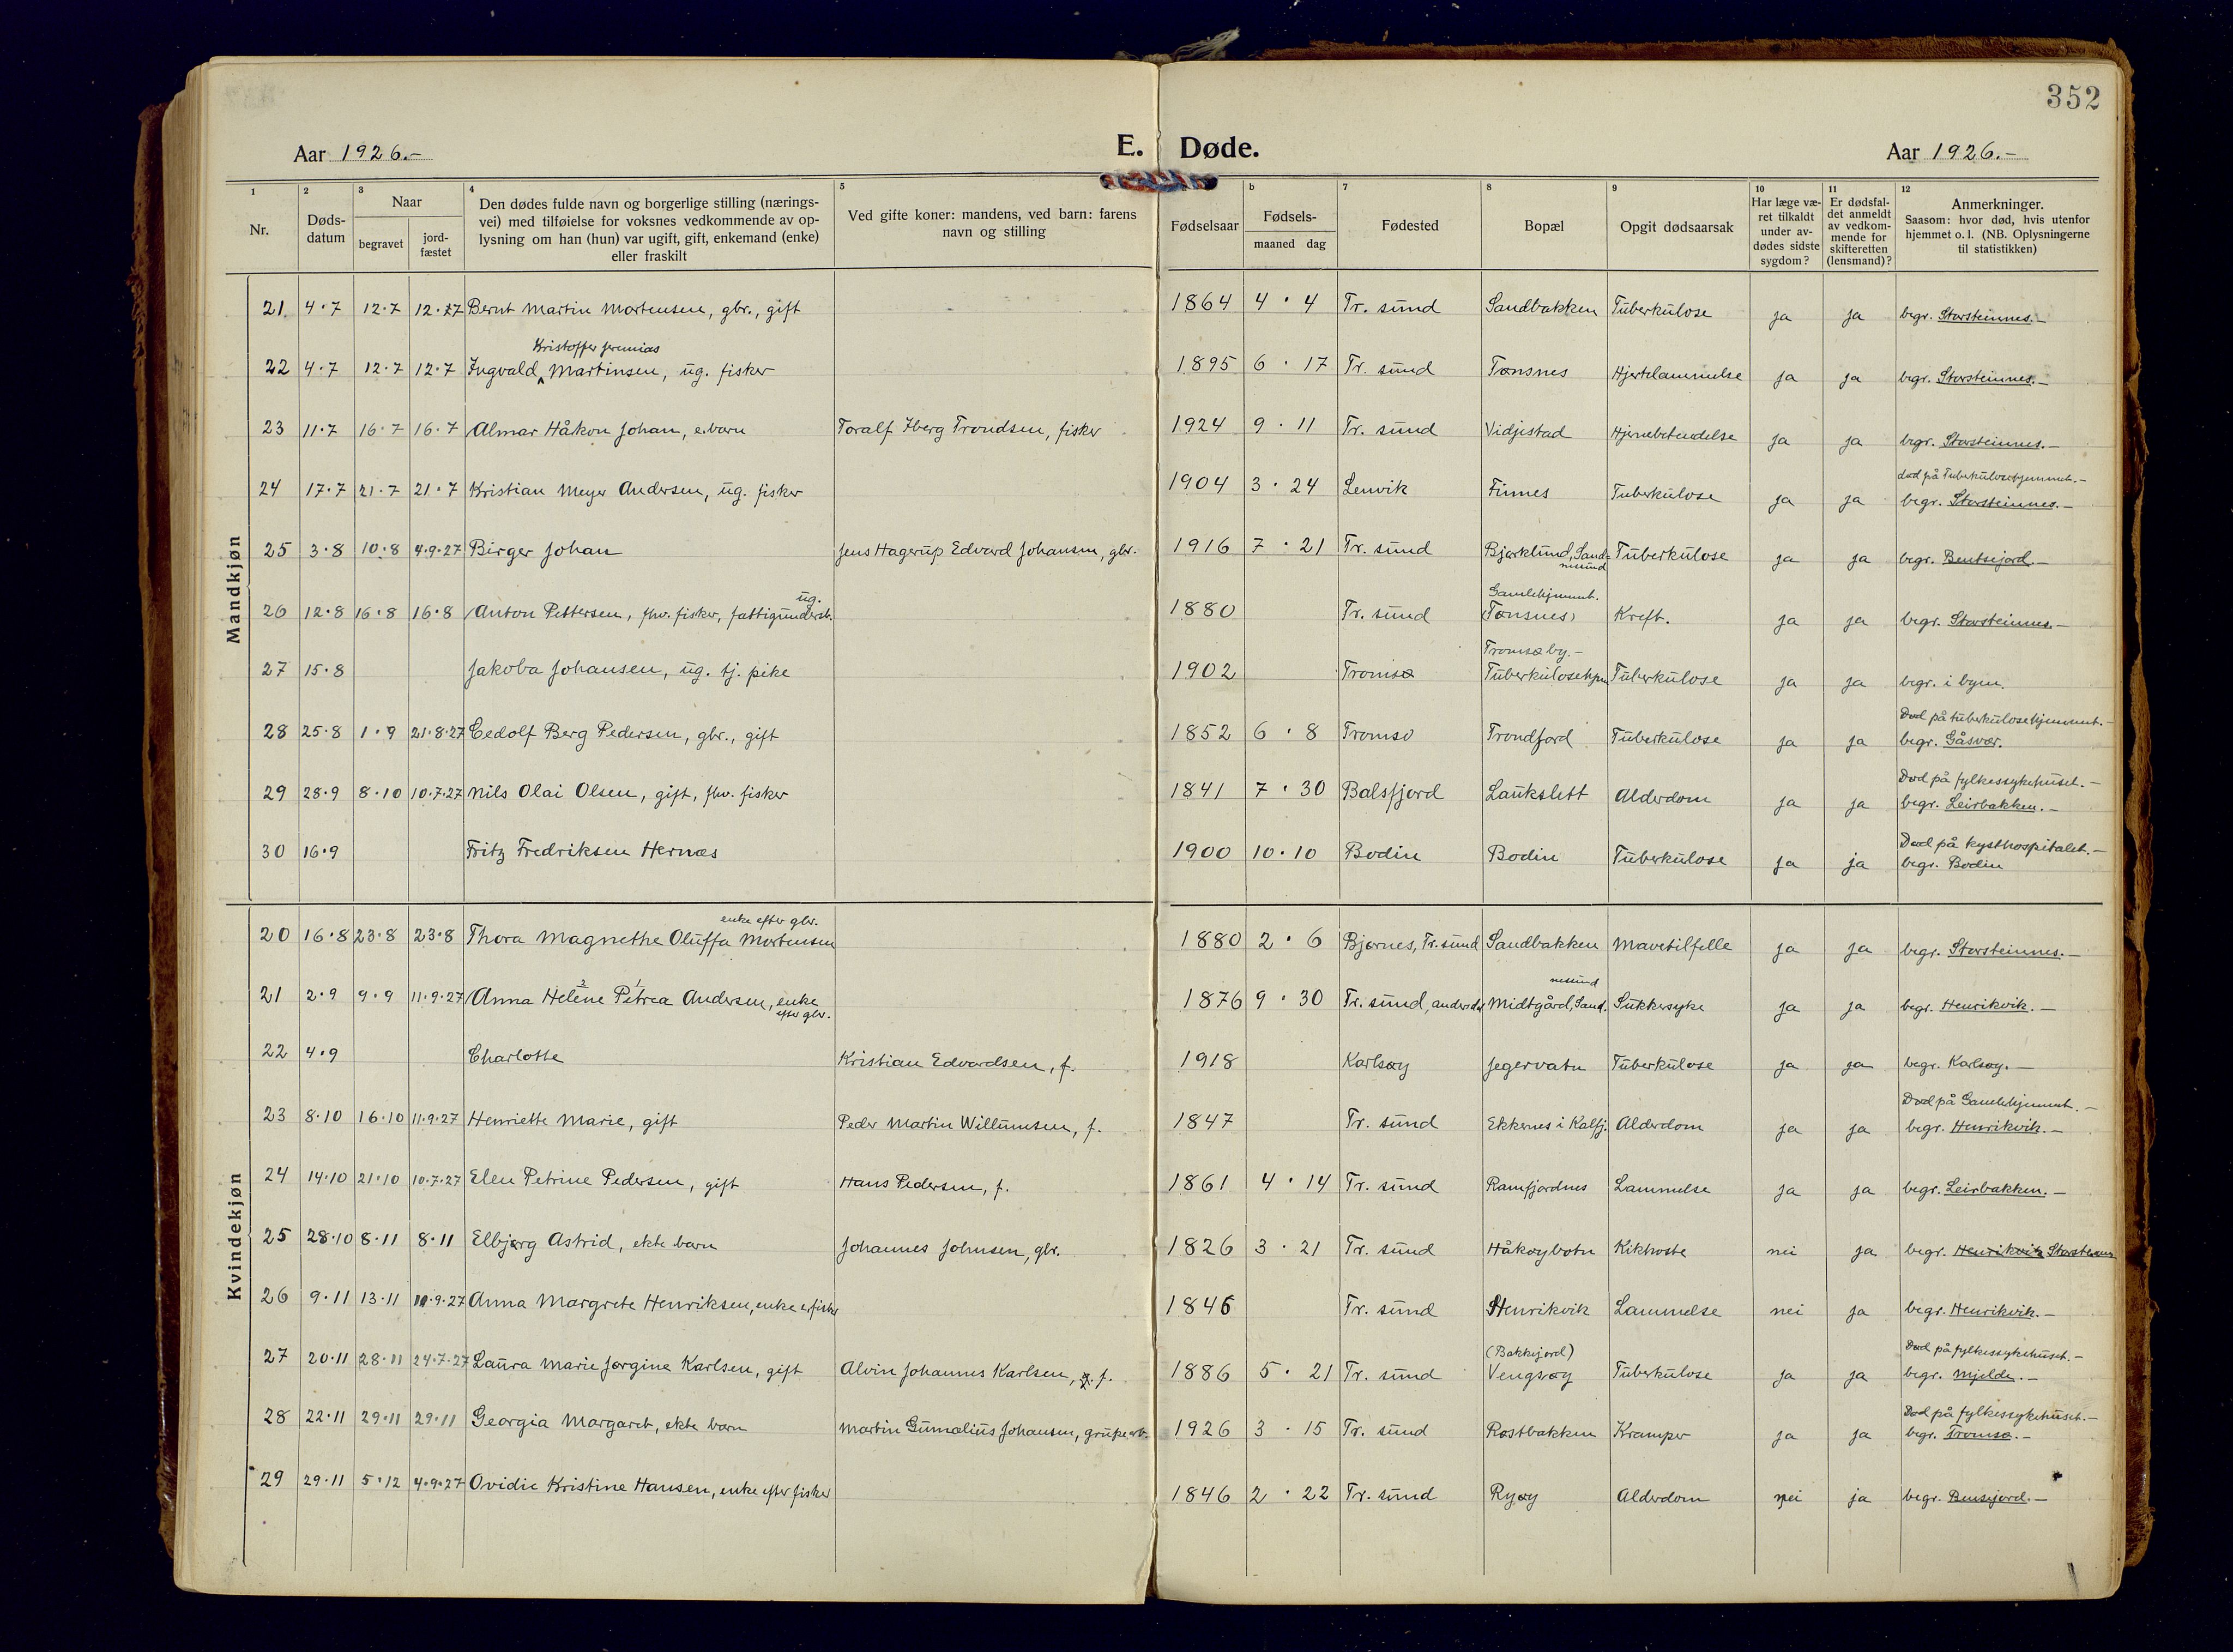 352
Aar 1926.- E. Døde. Aar 1926.-
1 Nr.
2 Døds-datum
3 Naar begravet jord-fæstet
4 Den dødes fulde navn og borgerlige stilling (nærings-
vei) med tilføielse for voksnes vedkommende av op-
lysning om han (hun) var ugift, gift, enkemand (enke)
eller fraskilt
5 Ved gifte koner: mandens, ved barn: farens
navn og stilling
Fødselsaar
b Fødsels-
maaned dag
7 Fødested
8 Bopæl
9 Opgit dødsaarsak
10 Har læge væ-
ret tilkaldt
under av-
dødes sidste
sygdom?
11 Er dødsfal-
det anmeldt
av vedkom-
mende for
skifteretten
(lensmand)?
12 Anmerkninger.
Saasom: hvor død, hvis utenfor
hjemmet o. l. (NB. Oplysningerne
til statistikken)
Mandkjøn
21 4·7 12·7 12·7 Bernt Martin Mortensen, gbr., gift 1864 4·4 Tr. sund Sandbakken Tuberkulose ja ja begr. Storsteinnes.-
Kristoffer Jeremias
22 4·7 12·7 12·7 Ingvald Martinsen, ug. fisker 1895 6·17 Tr. sund Tønsnes Hjertelammelse ja ja begr. Storsteinnes.-
23 11·7 16·7 16·7 Almar Håkon Johan, e. barn Toralf Iberg Trondsen, fisker 1924 9·11 Tr. sund Vidjestad Hjernebetendelse ja ja begr. Storsteinnes.-
død på Tuberkulosehjemmet.-
24 17·7 21·7 21·7 Kristian Meyer Andersen, ug. fisker 1904 3·24 Lenvik Finnes Tuberkulose ja ja begr. Storsteinnes.-
25 3·8 10·8 4·9·27 Birger Johan Jens Hagerup Edvard Johansen, gbr. 1916 7·21 Tr. sund Bjørklund, Sand-
nessund Tuberkulose ja ja begr. Bentsjord.-
ug. Gamlehjemmet.
26 12·8 16·8 16·8 Anton Pettersen, fhv. fisker, fattigunderst. 1880 Tr. sund (Tønsnes) Kreft. ja ja begr. Storsteinnes.-
Tromsø by.-
27 15·8 Jakoba Johansen, ug. tj. pike 1902 Tromsø Tuberkulosehjem Tuberkulose ja ja begr. i byen.
Død på tuberkulosehjemmet.-
28 25·8 1·9 21·8·27 Cedolf Berg Pedersen, gbr., gift 1852 6·8 Tromsø Trondfjord Tuberkulose ja ja begr. Gåsvær.
Død på fylkessykehuset.-
29 28·9 8·10 10·7·27 Nils Olai Olsen, gift, fhv. fisker 1841 7·30 Balsfjord Laukslett Alderdom ja ja begr. Leirbakken.-
Død på kysthospitalet.-
30 16·9 Fritz Fredriksen Hernæs 1900 10·10 Bodin Bodin Tuberkulose ja ja begr. Bodin
Kvindekjøn
enke efter gbr.
20 16·8 23·8 23·8 Thora Magnethe Oluffa Mortensen 1880 2·6 Bjørnes, Tr. sund Sandbakken Mavetilfelle ja ja begr. Storsteinnes.-
2 1 nessund
21 2·9 9·9 11·9·27 Anna Helene Petrea Andersen, enke
efter gbr. 1876 9·30 Tr. sund, Midtgård, Sand. Sukkersyke ja ja begr. Henrikvik.-
22 4·9 Charlotte Kristian Edvardsen, f. 1918 Karlsøy Jegervatn Tuberkulose ja ja begr. Karlsøy.-
Død på Gamlehjemmet.-
23 8·10 16·10 11·9·27 Henriette Marie, gift Peder Martin Willumsen, f. 1847 Tr. sund Ekkernes i Kalfj. Alderdom ja ja begr. Henrikvik.-
24 14·10 21·10 10·7·27 Elen Petrine Pedersen, gift Hans Pedersen, f. 1861 4·14 Tr. sund Ramfjordnes Lammelse ja ja begr. Leirbakken.-
25 28·10 8·11 8·11 Elbjørg Astrid, ekte barn Johannes Johnsen, gbr. 1826 3·21 Tr. sund Håkøybotn Kikhoste nei ja begr. Henrikvik Storsteinnes
26 9·11 13·11 11·9·27 Anna Margrete Henriksen, enke e. fisker 1846 Tr. sund Henrikvik Lammelse nei ja begr. Henrikvik.-
(Bakkejord) Død på fylkessykehuset.-
27 20·11 28·11 24·7·27 Laura Marie Jørgine Karlsen, gift Alvin Johannes Karlsen, f. 1886 5·21 Tr. sund Vengsøy Tuberkulose ja ja begr. Mjelde.-
Død på fylkessykehuset.-
28 22·11 29·11 29·11 Georgia Margaret, ekte barn Martin Gumalius Johansen, grubearb. 1926 3·15 Tr. sund Røstbakken Kramper ja ja begr. Tromsø.-
29 29·11 5·12 4·9·27 Ovidie Kristine Hansen, enke efter fisker 1846 2·22 Tr. sund Ryøy Alderdom nei ja begr. Bensjord.-